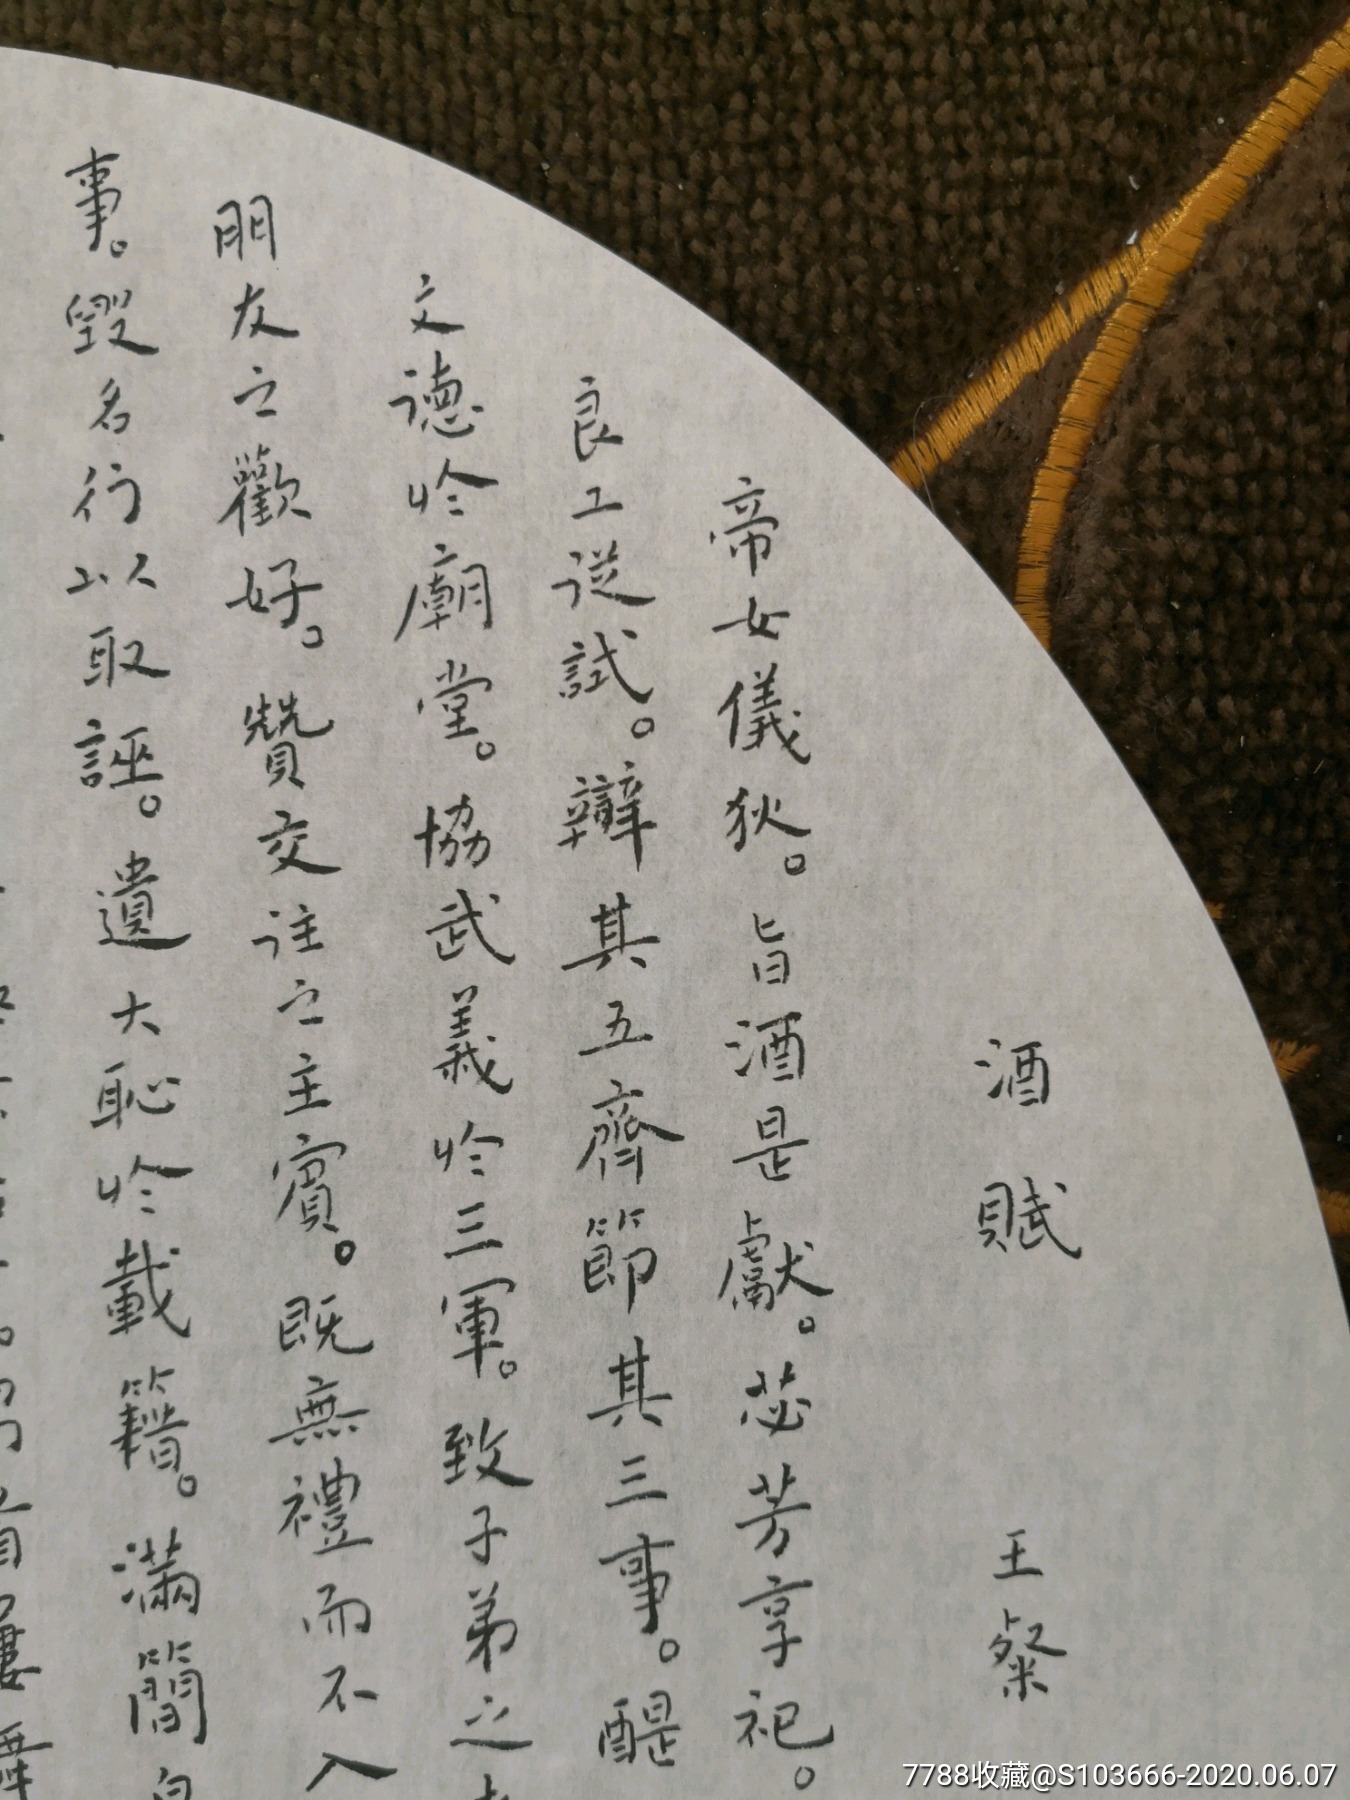 酒賦 王粲
帝女儀狄。旨酒是獻。苾芳享祀。
良工從試。辯其五齊節其三事。醍
文德於廟堂。協武義於三軍。致子弟之
朋友之歡好。贊交往之主賓。既無禮而不入
事。毀名行以取誣。遺大恥於載籍。滿簡
7788收藏@S103666-2020.06.07